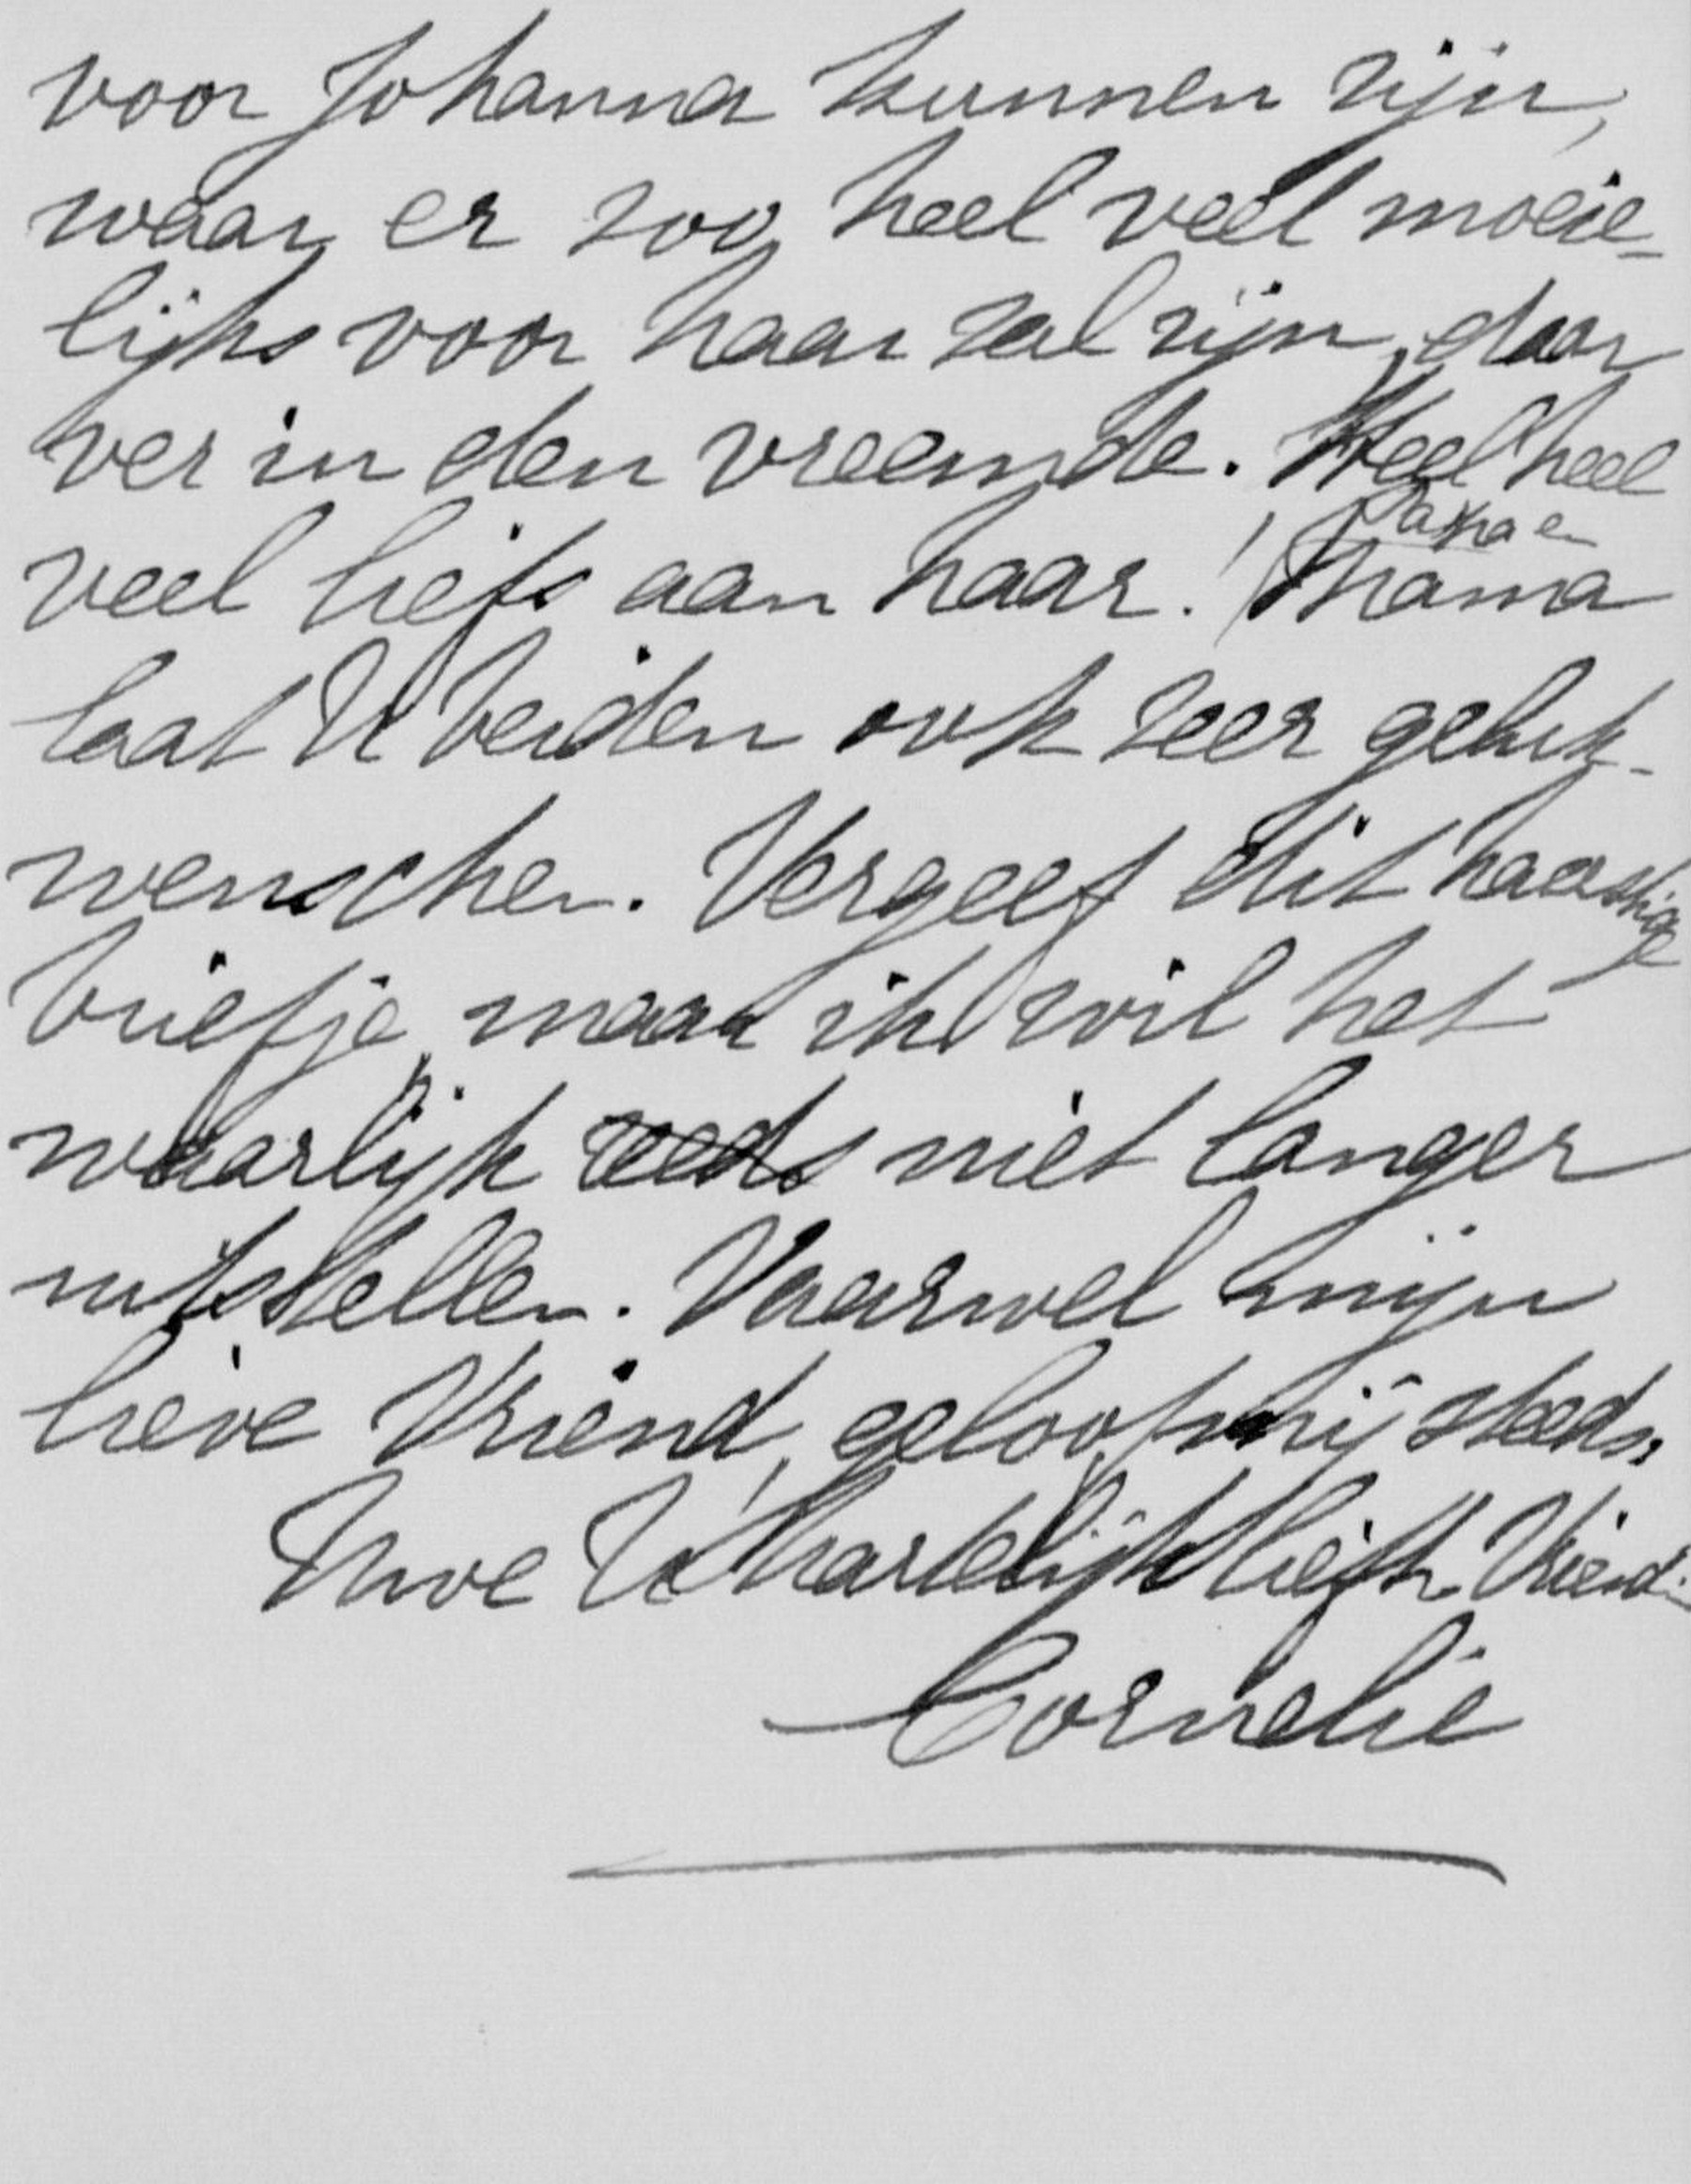 voor Johanna kunnen zijn,
waar er zoo heel veel moeie-
lijks voor haar zal zijn, daar
ver in den vreemde. Heel heel
veel liefs aan haar! Papa en
Mama
laat U beiden ook zeer geluk-
wenschen. Vergeef dit haastige
briefje, maar ik wil het
waarlijk reeds niet langer
uitstellen. Vaarwel mijn
lieve Vriend, geloof mij steeds,
Uwe U hartelijk liefh. Vriend.
Cornelie